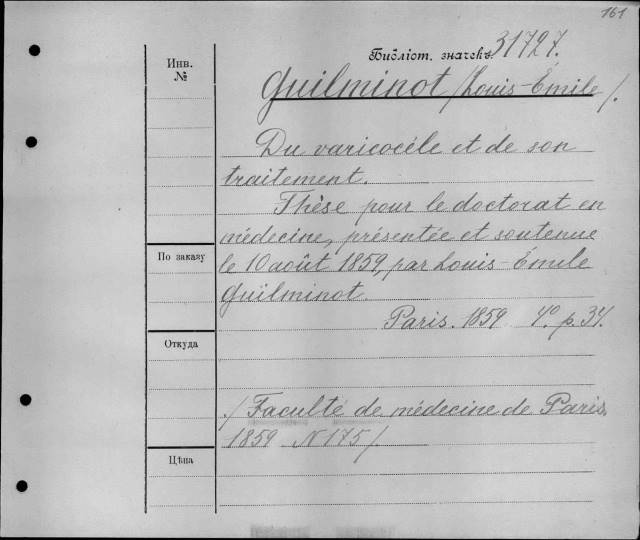 161
Библіот. значекъ. 31727.
Инв.
№
Guilminot /Louis-Émile/.
Du varicocéle et de son
traitement.
Thèse pour le doctorat en
médecine, présentée et soutenue
По заказу
le 10 août 1859, par Louis-Émile
Guilminot.
Paris. 1859 4º. p. 34.
Откуда
/Faculté de médecine de Paris
1859 N 175/
Цѣна